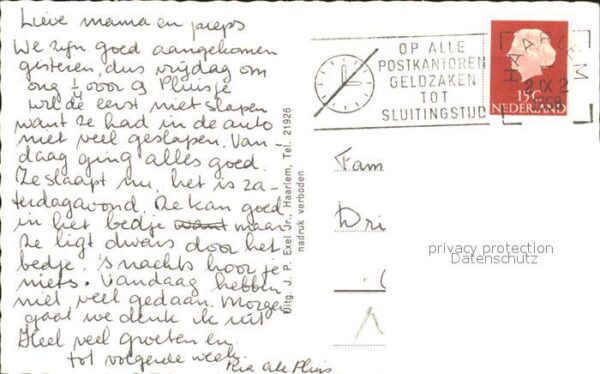 Lieve mama en pieps
We zijn goed aangekomen
gisteren, dus vrijdag om
ong ¼ voor 9 Pluisje
wilde eerst niet slapen
want ze had in de auto
niet veel geslapen. Van-
daag ging alles goed.
Ze slaapt nu, het is za-
terdagavond. Ze kan goed
in het bedje want maar
ze ligt dwars door het
bedje. 's nachts hoor je
niets. Vandaag hebben
niet veel gedaan. Morgen
gaat we denk ik uit
Heel veel groeten en
tot volgende week.
Ria Pluis
Uitg. J. P. Exel Jr., Haarlem, Tel. 21926
nadruk verboden
OP ALLE
POSTKANTOREN
GELDZAKEN
TOT
SLUITINGSTIJD
HAARLEM
2 IX 2
1968
15C
NEDERLAND
Fam
Dri
privacy protection
Datenschutz